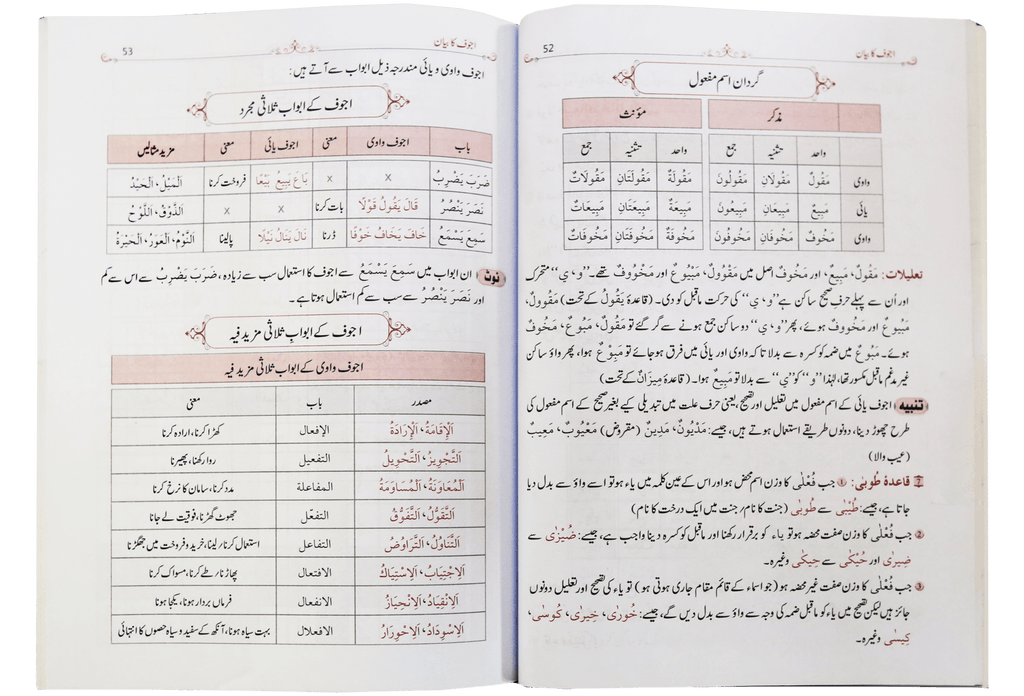 52
اجوف کا بیان
گردان اسم مفعول
مذکر مؤنث
واحد تثنیہ جمع واحد تثنیہ جمع
واوی مَقُولٌ مَقُولَانِ مَقُولُونَ مَقُولَةٌ مَقُولَتَانِ مَقُولَاتٌ
یائی مَبِيعٌ مَبِيعَانِ مَبِيعُونَ مَبِيعَةٌ مَبِيعَتَانِ مَبِيعَاتٌ
واوی مَخُوفٌ مَخُوفَانِ مَخُوفُونَ مَخُوفَةٌ مَخُوفَتَانِ مَخُوفَاتٌ
تعلیلات: مَقُولٌ، مَبِيعٌ، اور مَخُوفٌ اصل میں مَقْوُولٌ، مَبْيُوعٌ اور مَخْوُوفٌ تھے۔ ”و، ي“ متحرک
اور اُن سے پہلے حرف صحیح ساکن ہے ”و، ي“ کی حرکت ماقبل کو دی۔ (قاعدۂ يَقُولُ کے تحت) مَقُوولٌ،
مَبُيوعٌ اور مَخُووفٌ ہوئے، پھر ”و، ي“ دو ساکن جمع ہونے سے گر گئے تو مَقُولٌ، مَبُوعٌ، مَخُوفٌ
ہوئے۔ مَبُوعٌ میں ضمہ کو کسرہ سے بدلا تاکہ واوی اور یائی میں فرق ہو جائے تو مَبِوْعٌ ہوا، پھر واؤ ساکن
غیر مدغم ماقبل مکسور تھا، لہٰذا ”و“ کو ”ي“ سے بدلا تو مَبِيعٌ ہوا۔ (قاعدہ مِيزَانٌ کے تحت)
تنبیہ اجوف یائی کے اسم مفعول میں تعلیل اور تصحیح، یعنی حرف علت میں تبدیلی کیے بغیر صحیح کے اسم مفعول کی
طرح چھوڑ دینا، دونوں طریقے استعمال ہوتے ہیں، جیسے: مَدْيُونٌ، مَدِينٌ (مقروض) مَعْيُوبٌ، مَعِيبٌ
(عیب والا)
قاعدۂ طُوبٰی: ① جب فُعْلٰی کا وزن اسم محض ہو اور اس کے عین کلمہ میں یاء ہو تو اسے واؤ سے بدل دیا
جاتا ہے، جیسے: طُيْبٰی سے طُوبٰی (جنت کا نام/ جنت میں ایک درخت کا نام)
② جب فُعْلٰی کا وزن صفت محضہ ہو تو یاء کو برقرار رکھنا اور ماقبل کو کسرہ دینا واجب ہے، جیسے: ضُيْزٰی سے
ضِيزٰی اور حُيْكٰی سے حِيكٰی وغیرہ۔
③ جب فُعْلٰی کا وزن صفت غیر محضہ ہو (جو اسماء کے قائم مقام جاری ہوتی ہو) تو یاء کی تصحیح اور تعلیل دونوں
جائز ہیں لیکن تصحیح میں یاء کو ماقبل ضمہ کی وجہ سے واؤ سے بدل دیں گے، جیسے: خُورٰی، خِيرٰی، كُوسٰی،
كِيسٰی وغیرہ۔
53
اجوف کا بیان
اجوف واوی و یائی مندرجہ ذیل ابواب سے آتے ہیں:
اجوف کے ابواب ثلاثی مجرد
باب اجوف واوی معنی اجوف یائی معنی مزید مثالیں
ضَرَبَ يَضْرِبُ x x بَاعَ يَبِيعُ بَيْعًا فروخت کرنا اَلْمَيْلُ، اَلْحَيْدُ
نَصَرَ يَنْصُرُ قَالَ يَقُولُ قَوْلًا بات کرنا x x اَلذَّوْقُ، اَللَّوْحُ
سَمِعَ يَسْمَعُ خَافَ يَخَافُ خَوْفًا ڈرنا نَالَ يَنَالُ نَيْلًا پالینا اَلنَّوْمُ، اَلْعَوَرُ، اَلْحَيْرَةُ
نوٹ ان ابواب میں سَمِعَ يَسْمَعُ سے اجوف کا استعمال سب سے زیادہ، ضَرَبَ يَضْرِبُ سے اس سے کم
اور نَصَرَ يَنْصُرُ سے سب سے کم استعمال ہوتا ہے۔
اجوف کے ابواب ثلاثی مزید فیہ
اجوف واوی کے ابواب ثلاثی مزید فیہ
مصدر باب معنی
اَلْإِقَامَةُ، اَلْإِرَادَةُ الإفعال کھڑا کرنا، ارادہ کرنا
اَلتَّجْوِيزُ، اَلتَّحْوِيلُ التفعيل روا رکھنا، پھیرنا
اَلْمُعَاوَنَةُ، اَلْمُسَاوَمَةُ المفاعلة مدد کرنا، سامان کا نرخ کرنا
اَلتَّقَوُّلُ، اَلتَّفَوُّقُ التفعّل جھوٹ گھڑنا، فوقیت لے جانا
اَلتَّنَاوُلُ، اَلتَّرَاوُضُ التفاعل استعمال کرنا/ لینا، خرید و فروخت میں جھگڑنا
اَلِاجْتِيَابُ، اَلِاسْتِيَاكُ الافتعال پھاڑنا/ طے کرنا، مسواک کرنا
اَلِانْقِيَادُ، اَلِانْحِيَازُ الانفعال فرماں بردار ہونا، یکجا ہونا
اَلِاسْوِدَادُ، اَلِاحْوِرَارُ الافعلال بہت سیاہ ہونا، آنکھ کے سفید و سیاہ حصوں کا انتہائی